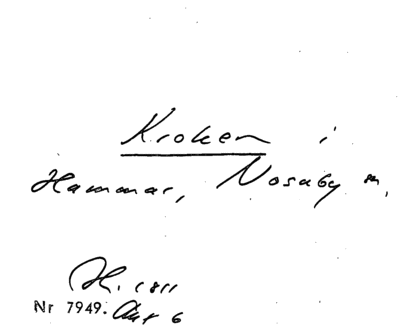 Kroken i
Hammar, Nosaby sn,
H. 1811
Nr 7949. Akt 6